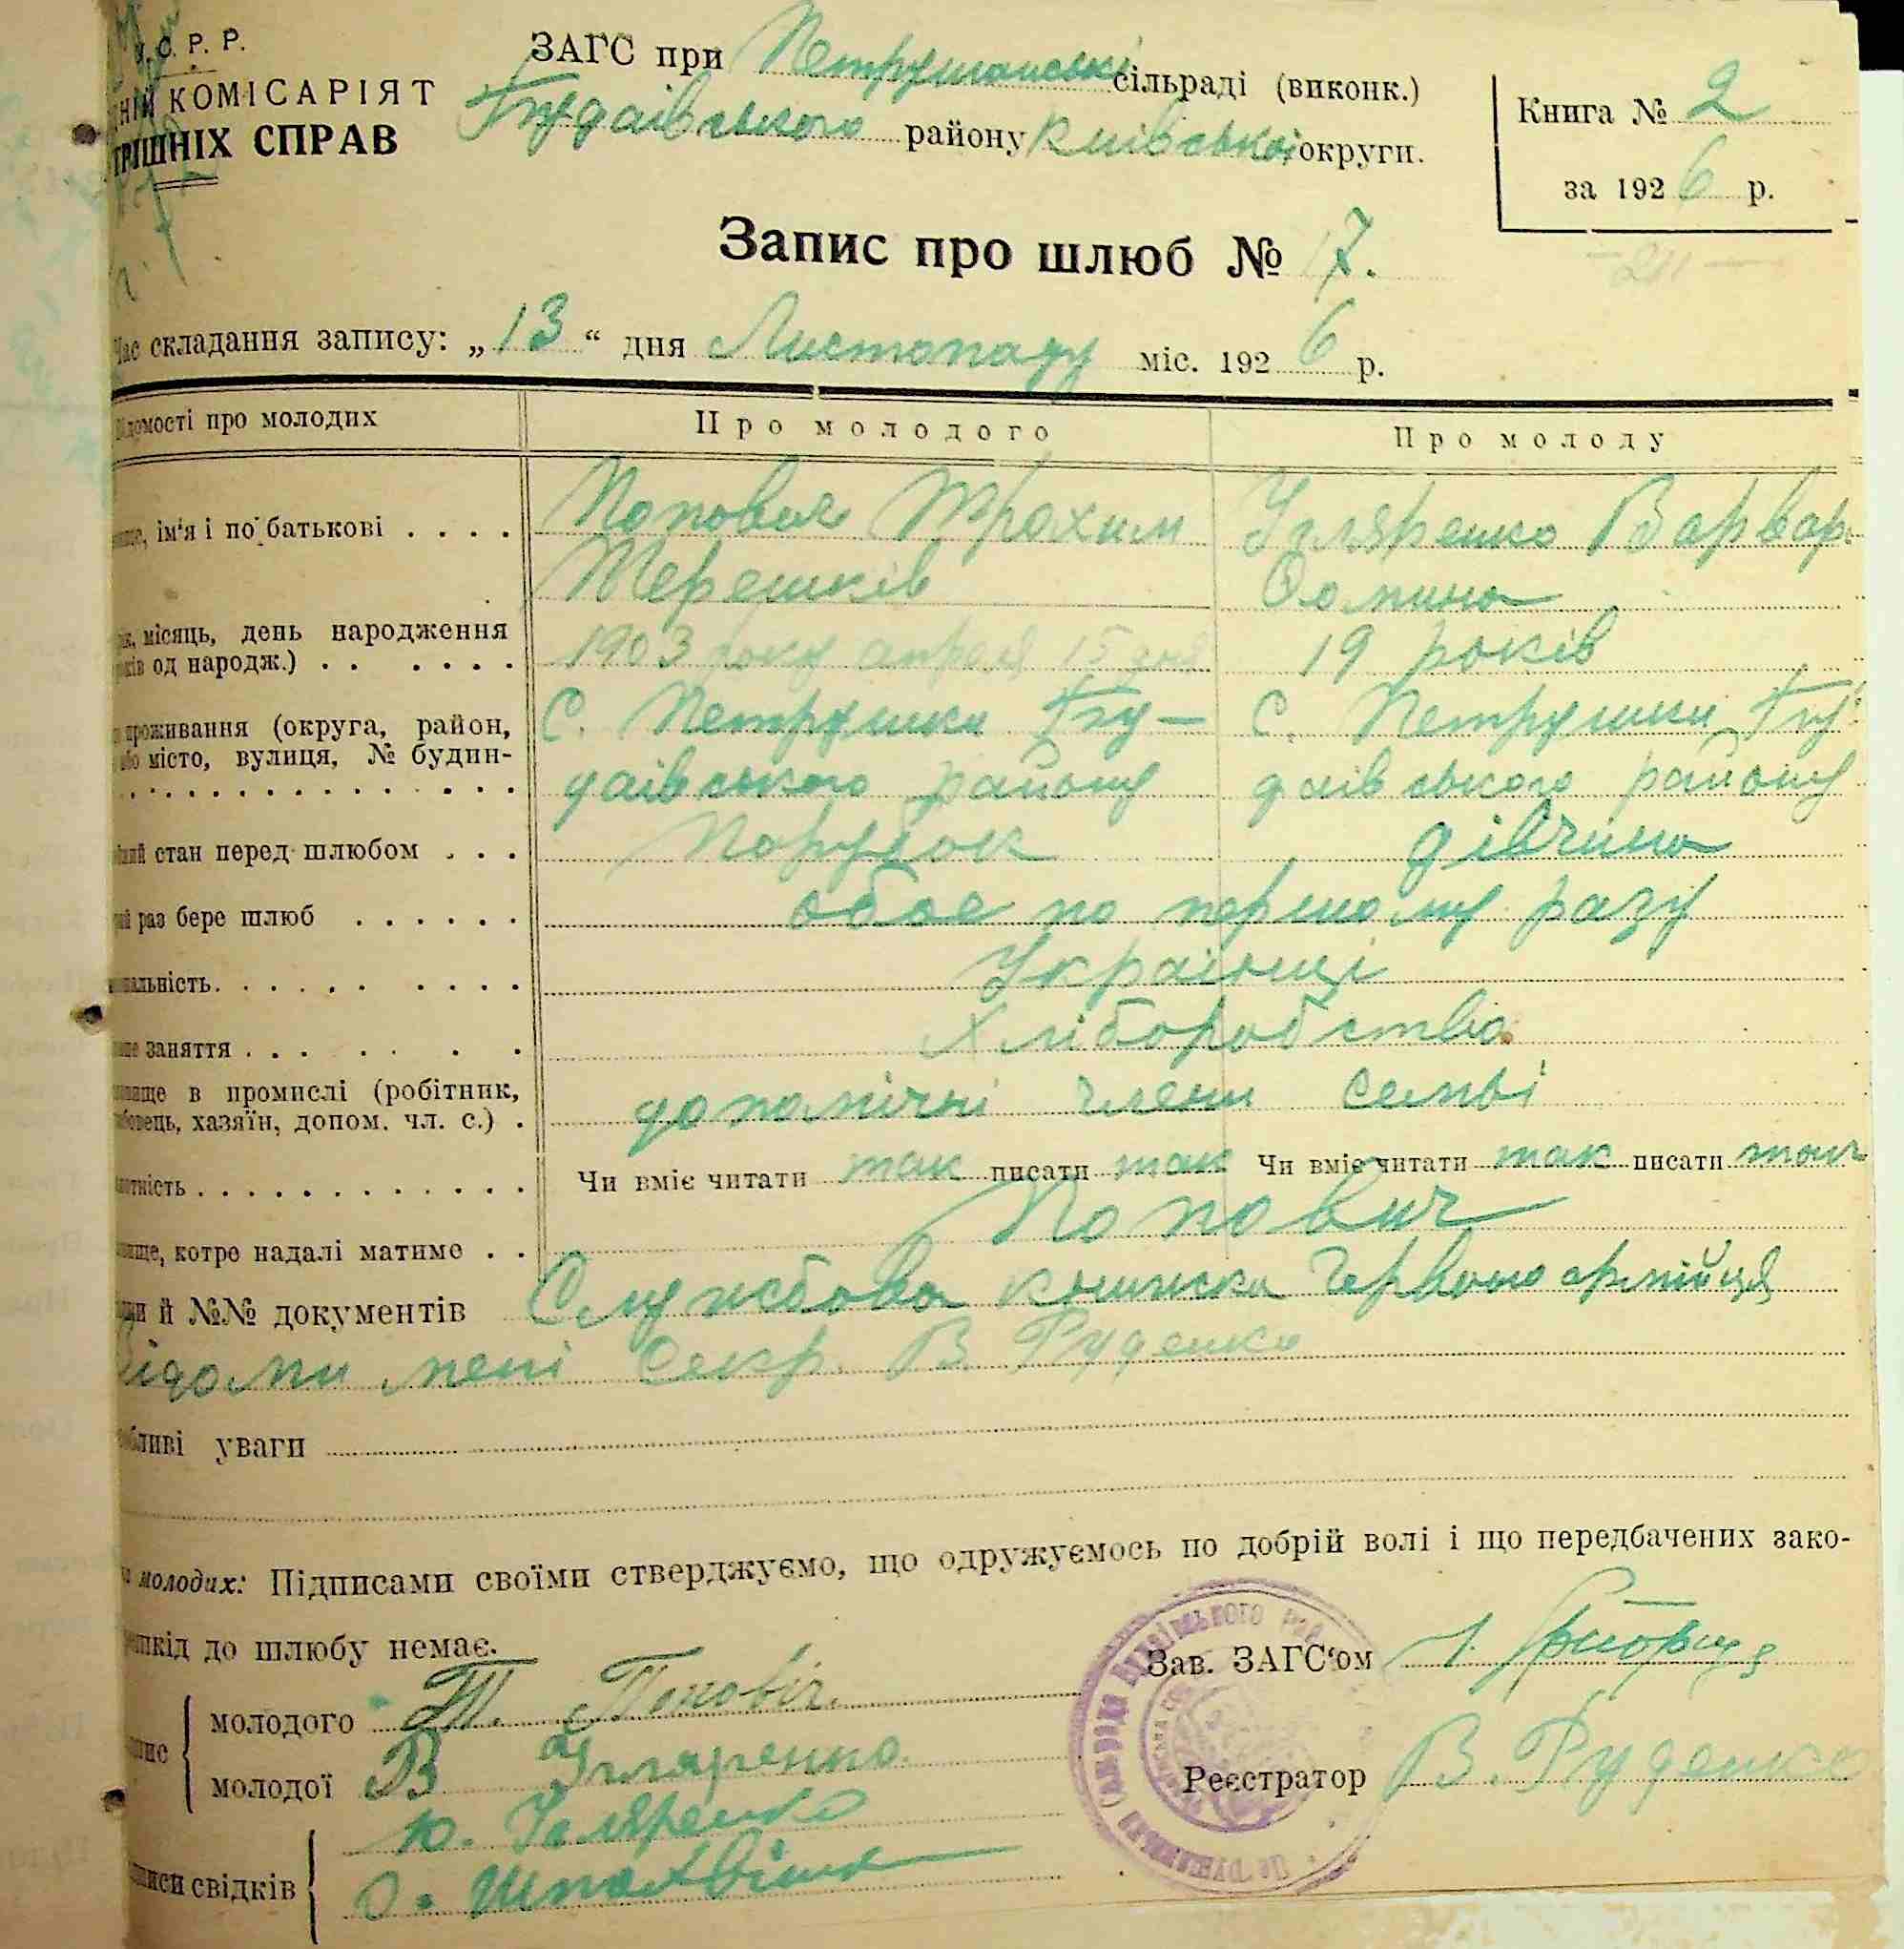 С. Р. Р.
КОМІСАРІЯТ
СПРАВ
ЗАГС при Петрушанські сільраді (виконк.)
Будаівського району Київської округи.
Книга № 2
за 1926 р.
Запис про шлюб № 17.
складання запису: „13“ дня Листопаду міс. 1926 р.
про молодих
Про молодого
Про молоду
ім'я і по батькові . . . .
Попович Трохим
Терешків
Ігляренко Варвар
місяць, день народження
од народж.) . . . . . .
1903 року апреля 15 дня
19 років
проживання (округа, район,
місто, вулиця, № будин-
С. Петрушки Бу-
даівського району
С. Петрушки Бу
даівського району
стан перед шлюбом . . .
Порубок
дівчина
раз бере шлюб . . . . . .
обое по першому разу
Українці
заняття . . .
Хліборобства
в промислі (робітник,
хазяїн, допом. чл. с.) .
допомічні члени семьі
Чи вміє читати так писати так Чи вміє читати так писати так
котре надалі матиме . .
Попович
й №№ документів Служебова книжка Червоноармійця
відоми мені Секр. В. Руденко
уваги
молодих: Підписами своїми стверджуємо, що одружуємось по добрій волі і що передбачених зако-
до шлюбу немає.
молодого Т. Пововіч
молодої В Ігляренко
Ю. Ігляренко
свідків
Зав. ЗАГС'ом
Реєстратор В. Руденко